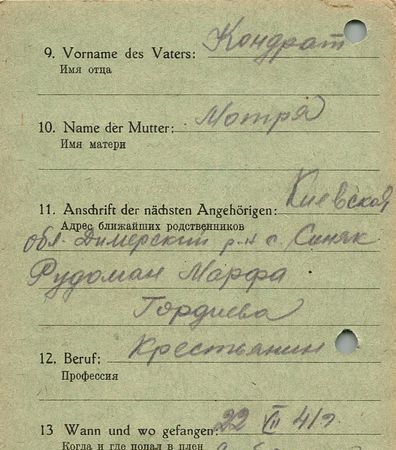 9. Vorname des Vaters: Кондрат
Имя отца
10. Name der Mutter: Мотря
Имя матери
Киевской
11. Anschrift der nächsten Angehörigen:
Адрес ближайших родственников
обл. Димерский р-н с. Синяк
Рудоман Марфа
Гордиева
12. Beruf: Крестьянин
Профессия
13 Wann und wo gefangen: 22 VII 41 г
Когда и где попал в плен